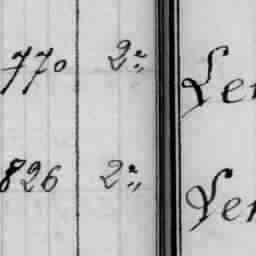 770 2" Ler
826 2" Ler